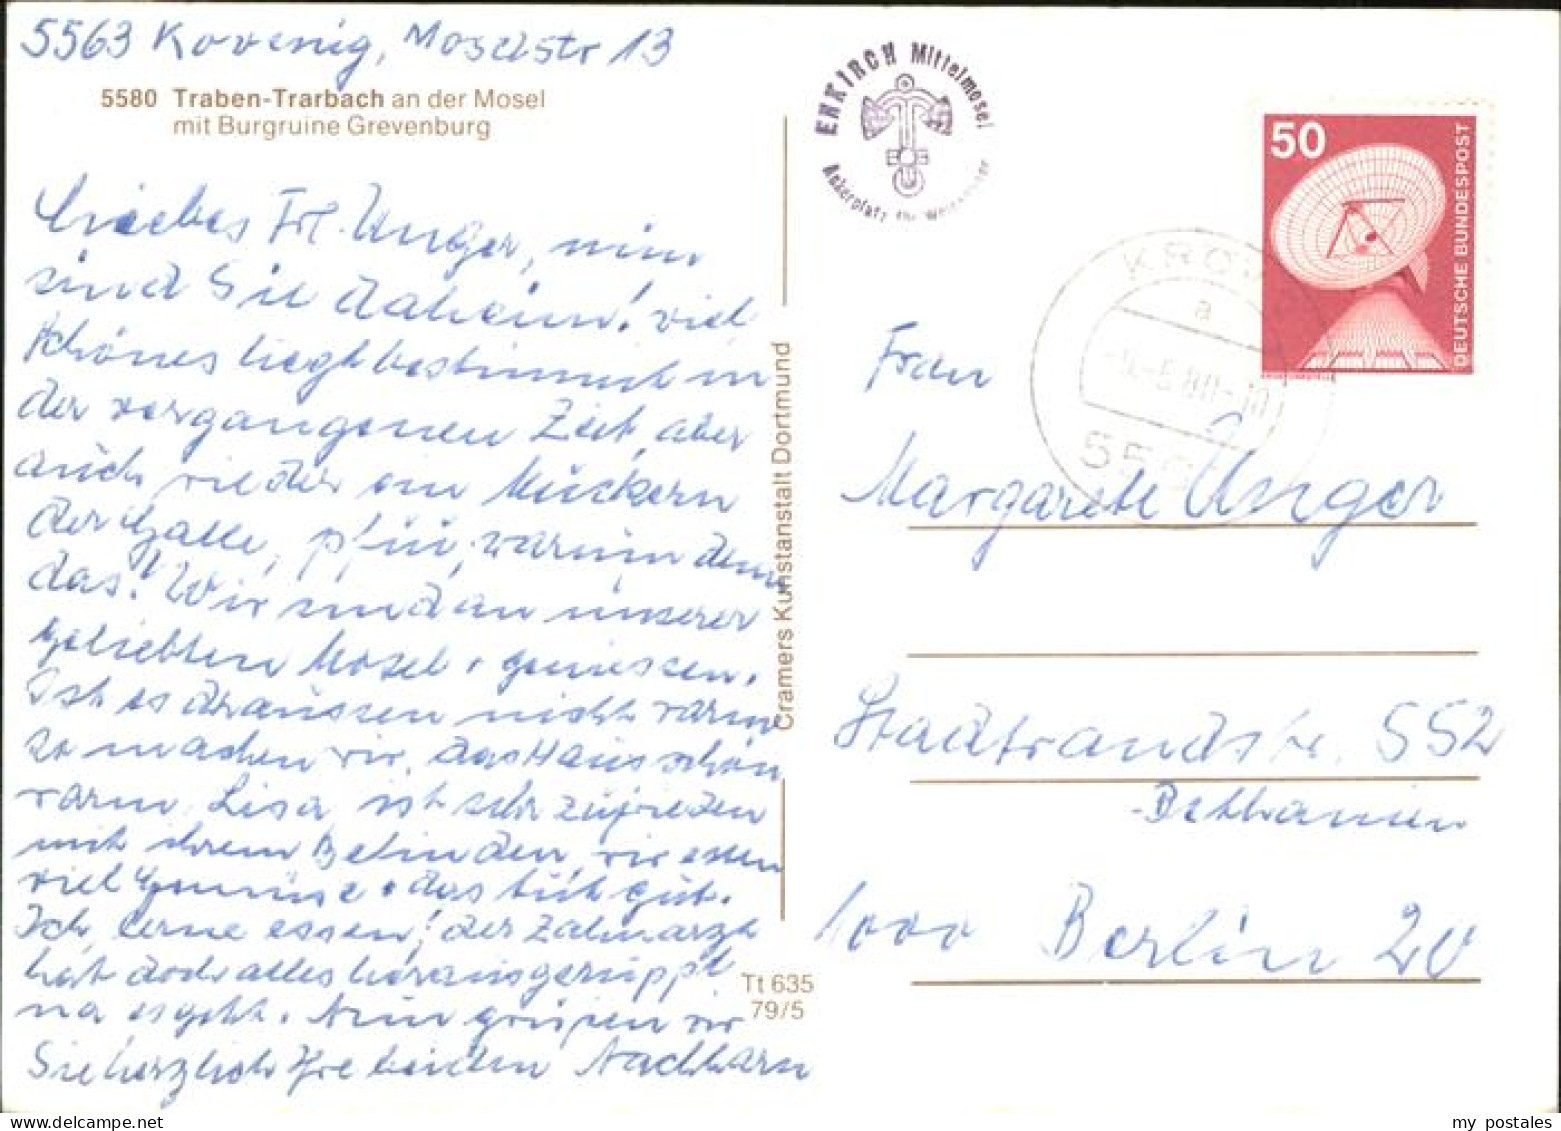 5563 Kövenig, Moselstr 13
5580 Traben-Trarbach an der Mosel
mit Burgruine Grevenburg
Liebes Frl. Unger, nun
sind Sie daheim! viel
schönes liegt bestimmt in
der vergangenen Zeit, aber
auch wieder ein Muckern
der Galle, pfui, warum denn
das! Wir sind an unserer
geliebten Mosel + geniessen.
Ist es draussen nicht warm
so machen wir das Haus schön
warm. Lisa ist sehr zufrieden
mit ihrem Befinden, wir essen
viel Gemüse + das tut gut.
Ich lerne essen! der Zahnarzt
hat doch alles herausgeruppt
na es geht. Nun grüßen wir
Sie herzlich Ihre beiden Nachbarn
Cramers Kunstanstalt Dortmund
Tt 635
79/5
ENKIRCH Mittelmosel
Ankerplatz für
50
DEUTSCHE BUNDESPOST
a
Frau
Margarete Unger
Stadtrandstr. 552
-Bethanien
1000 Berlin 20
my postales